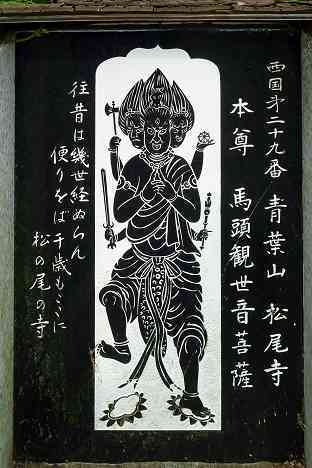 西国第二十九番 青葉山 松尾寺
本尊 馬頭観世音菩薩
往昔は幾世経ぬらん
便りをば千歳もここに
松の尾の寺